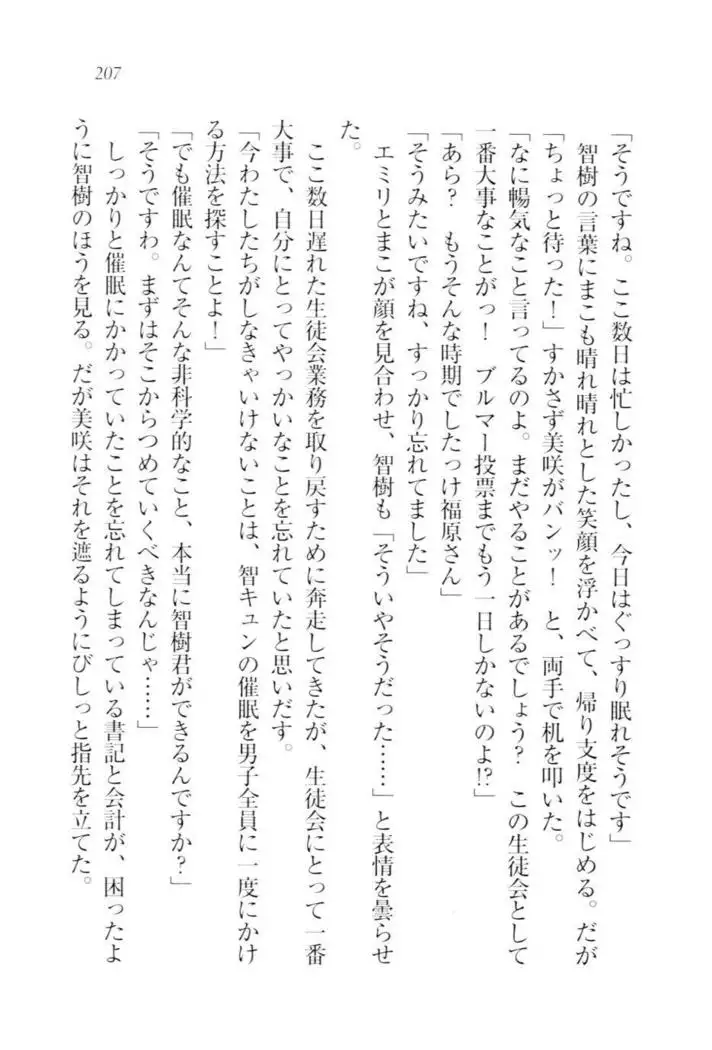 207
「そうですね。ここ数日は忙しかったし、今日はぐっすり眠れそうです」
智樹の言葉にまこも晴れ晴れとした笑顔を浮かべて、帰り支度をはじめる。だが
「ちょっと待った！」すかさず美咲がバンッ！　と、両手で机を叩いた。
「なに暢気なこと言ってるのよ。まだやることがあるでしょう？　この生徒会として
一番大事なことがっ！　ブルマー投票までもう一日しかないのよ!?」
「あら？　もうそんな時期でしたっけ福原さん」
「そうみたいですね、すっかり忘れてました」
エミリとまこが顔を見合わせ、智樹も「そういやそうだった……」と表情を曇らせ
た。
ここ数日遅れた生徒会業務を取り戻すために奔走してきたが、生徒会にとって一番
大事で、自分にとってやっかいなことを忘れていたと思いだす。
「今わたしたちがしなきゃいけないことは、智キュンの催眠を男子全員に一度にかけ
る方法を探すことよ！」
「でも催眠なんてそんな非科学的なこと、本当に智樹君ができるんですか？」
「そうですわ。まずはそこからつめていくべきなんじゃ……」
しっかりと催眠にかかっていたことを忘れてしまっている書記と会計が、困ったよ
うに智樹のほうを見る。だが美咲はそれを遮るようにびしっと指先を立てた。